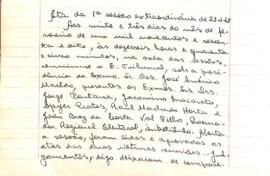 Ata da 1ª sessão extraordinária de 23-2-68
Aos vinte e três dias do mês de fe-
vereiro de um mil novecentos e sessen-
ta e oito, às dezesseis horas e quarenta
e cinco minutos, na sala das sessões,
reuniu-se o E. Tribunal, sob a presi-
dência do Exmo. Sr. Des. José Américo
presentes os Exmos. Srs. Drs.
Jorge Fontana,
Prates, Raul Machado Horta e
João Braz da Costa Val Filho, Procura-
dor Regional Eleitoral, substituto. Aberta
a sessão, foram lidas e aprovadas as
atas das duas últimas reuniões. Jul-
gamentos, digo deixaram de compare-